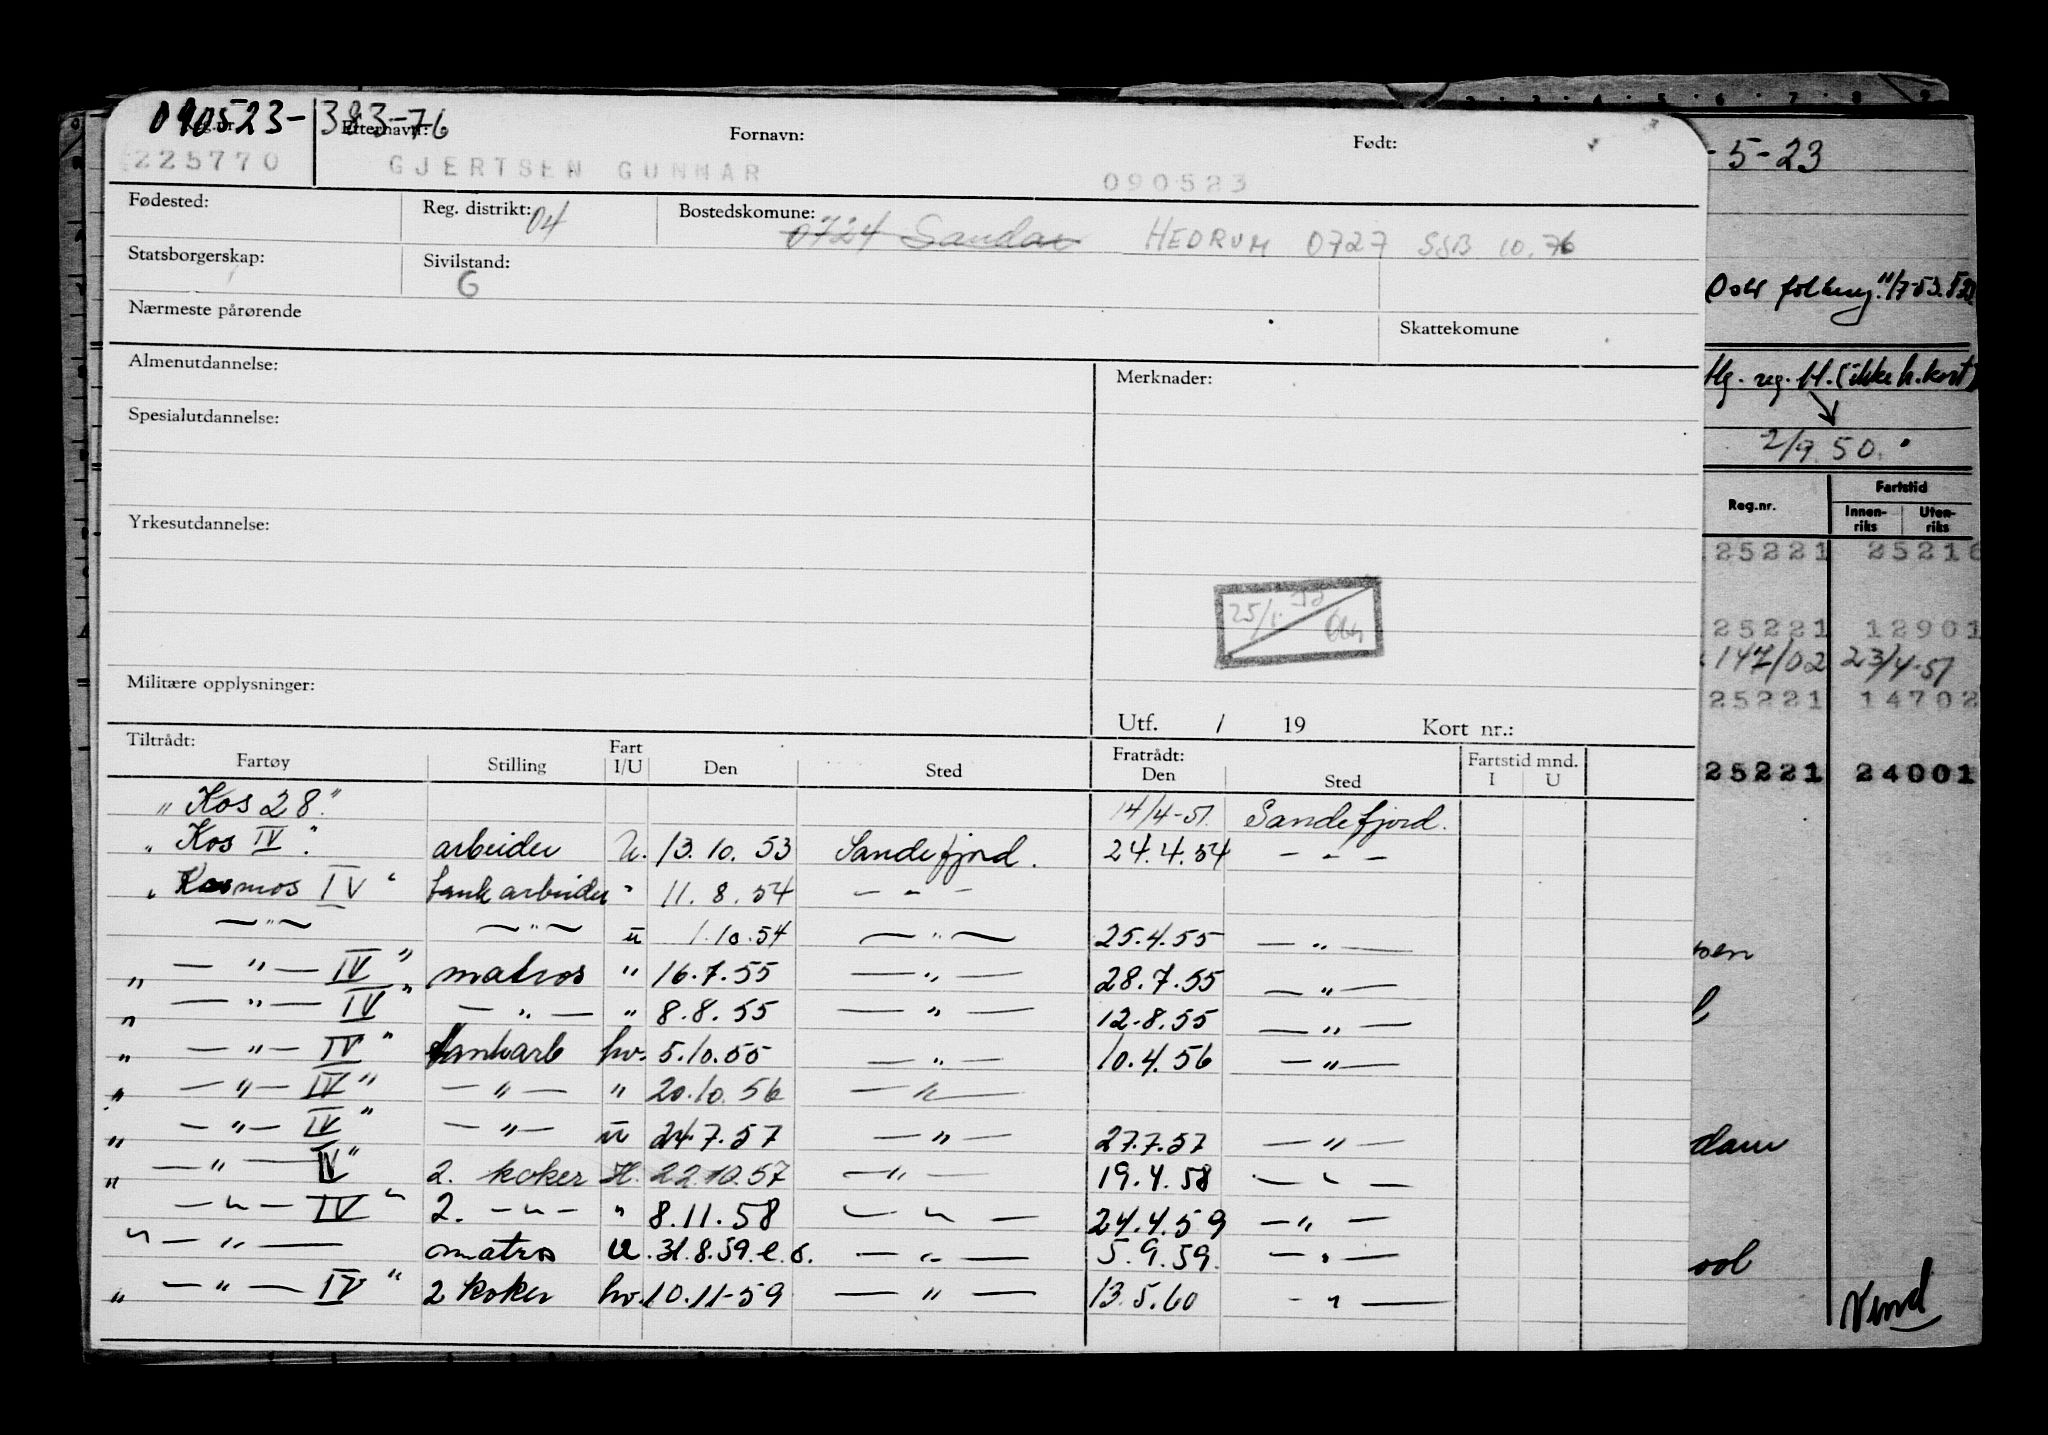 090523-383-76
Reg.nr. Efternavn: Fornavn: Født:
225770 GJERTSEN GUNNAR 090523
Fødested: Reg. distrikt: 04 Bostedskomune: 0724 Sandar HEDRUM 0727 SSB 10.76
Statsborgerskap: Sivilstand: G
Nærmeste pårørende Skattekomune
Almenutdannelse: Merknader:
Spesialutdannelse:
Yrkesutdannelse:
25/1
Militære opplysninger:
Utf. / 19 Kort nr.:
Tiltrådt: Fratrådt: Fartstid mnd.
Fartøy Stilling Fart I/U Den Sted Den Sted I U
„ Kos 28." 14/4-51. Sandefjord.
„ Kos IV". arbeider U. 13.10.53 Sandefjord. 24.4.54 — " —
„ Kosmos IV" tankarbeider " 11.8.54 — " —
— " — — " — u 1.10.54 — " — 25.4.55 — " —
„ — " — IV" matros " 16.7.55 — " — 28.7.55 — " —
„ — " — IV" — " — " 8.8.55 — " — 12.8.55 — " —
„ — " — IV" tankarb hv. 5.10.55 — " — 10.4.56 — " —
„ — " — IV" — " — " 20.10.56 — " —
„ — " — IV" — " — u 24.7.57 — " — 27.7.57 — " —
„ — " — IV" 2. koker H. 22.10.57 — " — 19.4.58 — " —
— " — IV" 2. — " — " 8.11.58 — " — 24.4.59 — " —
" — " — matros U. 31.8.59. e.o. — " — 5.9.59. — " —
„ — " — IV" 2 koker hv. 10.11-59 — " — 13.5.60 — " —
-5-23
11/7-53.
reg. (ikke h.kort)
2/9.50.
Reg.nr. Fartstid
Innen-riks Uten-riks
25221 25216
25221 12901
147/02 23/4-51
25221 14702
25221 24001
sen
dam
ool
Vend